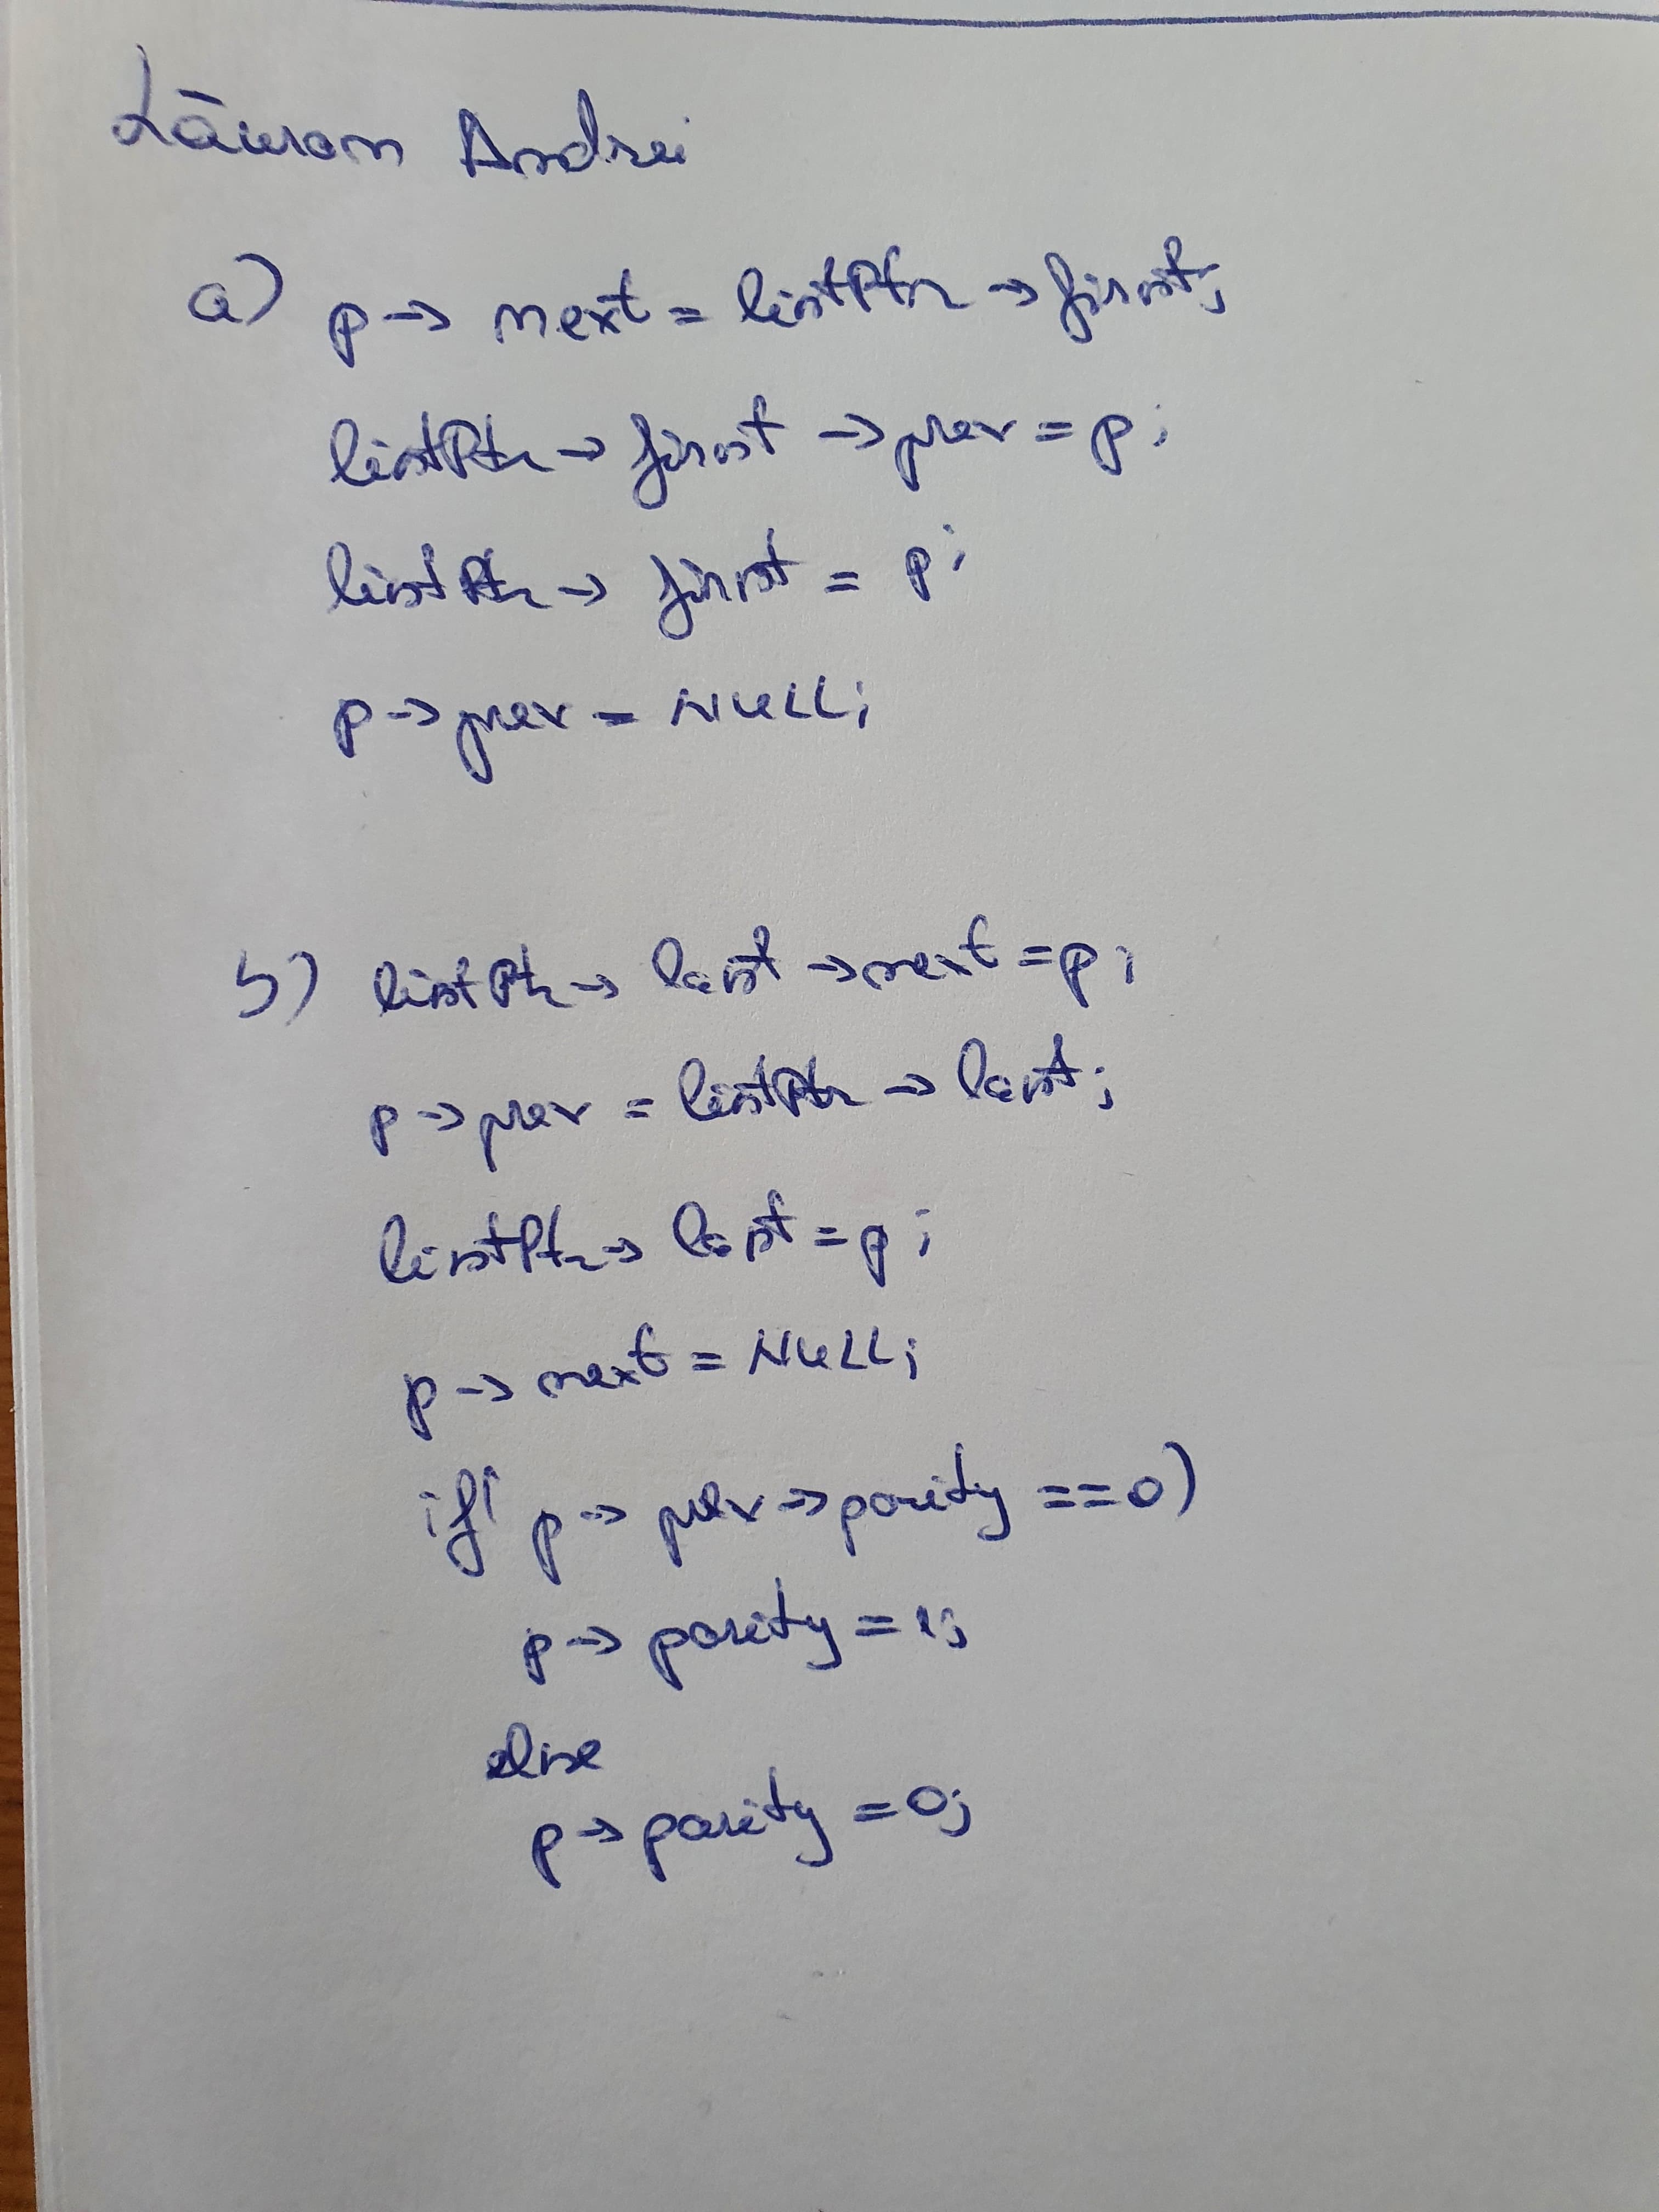 Lăuran Andrei
a) p→ next = listPtr → first;
listPtr → first → prev = p;
listPtr → first = p;
p→prev = NULL;
b) listPtr → last →next = p;
p→prev = listPtr → last;
listPtr → last = p;
p→ next = NULL;
if( p→ prev→parity ==0)
p→ parity = 1;
else
p→ parity = 0;